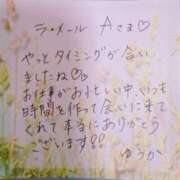 ラ・メール Aさま♡
やっとタイミングが合い
ましたね♡
お仕事がお忙しい中、いつも
時間を作って会いに来て
くれて本当にありがとう
ございます!!
ゆうか